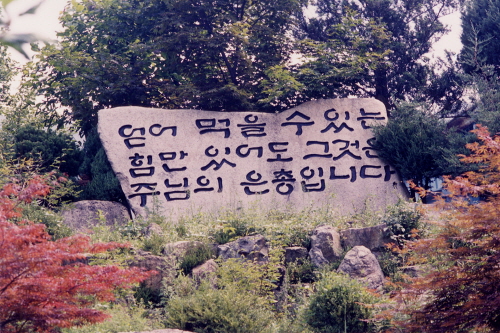 얻어 먹을 수 있는
힘만 있어도 그것은
주님의 은총입니다.